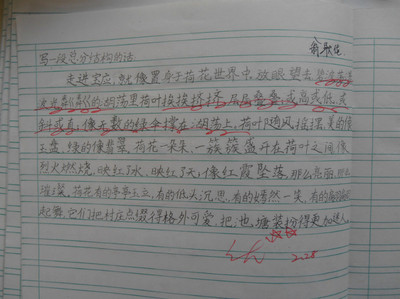 写一段总分结构的话
走进宝应,就像置身于荷花世界中,放眼望去,碧波荡
的湖荡里荷叶挨挨挤挤,层层叠叠,或高或低,或
斜或直,像无数的绿伞撑在湖荡上,荷叶随风摇摆,美的像
玉盘,绿的像翡翠,荷花一朵朵,一簇簇盛开在荷叶之间像
烈火燃烧,映红了水,映红了天,像红霞坠落,那么亮丽,那么
璀璨,荷花有的亭亭玉立,有的低头沉思,有的嫣然一笑,有的
起舞,它们把村庄点缀得格外可爱,把池塘装扮得更加迷人。
2.28